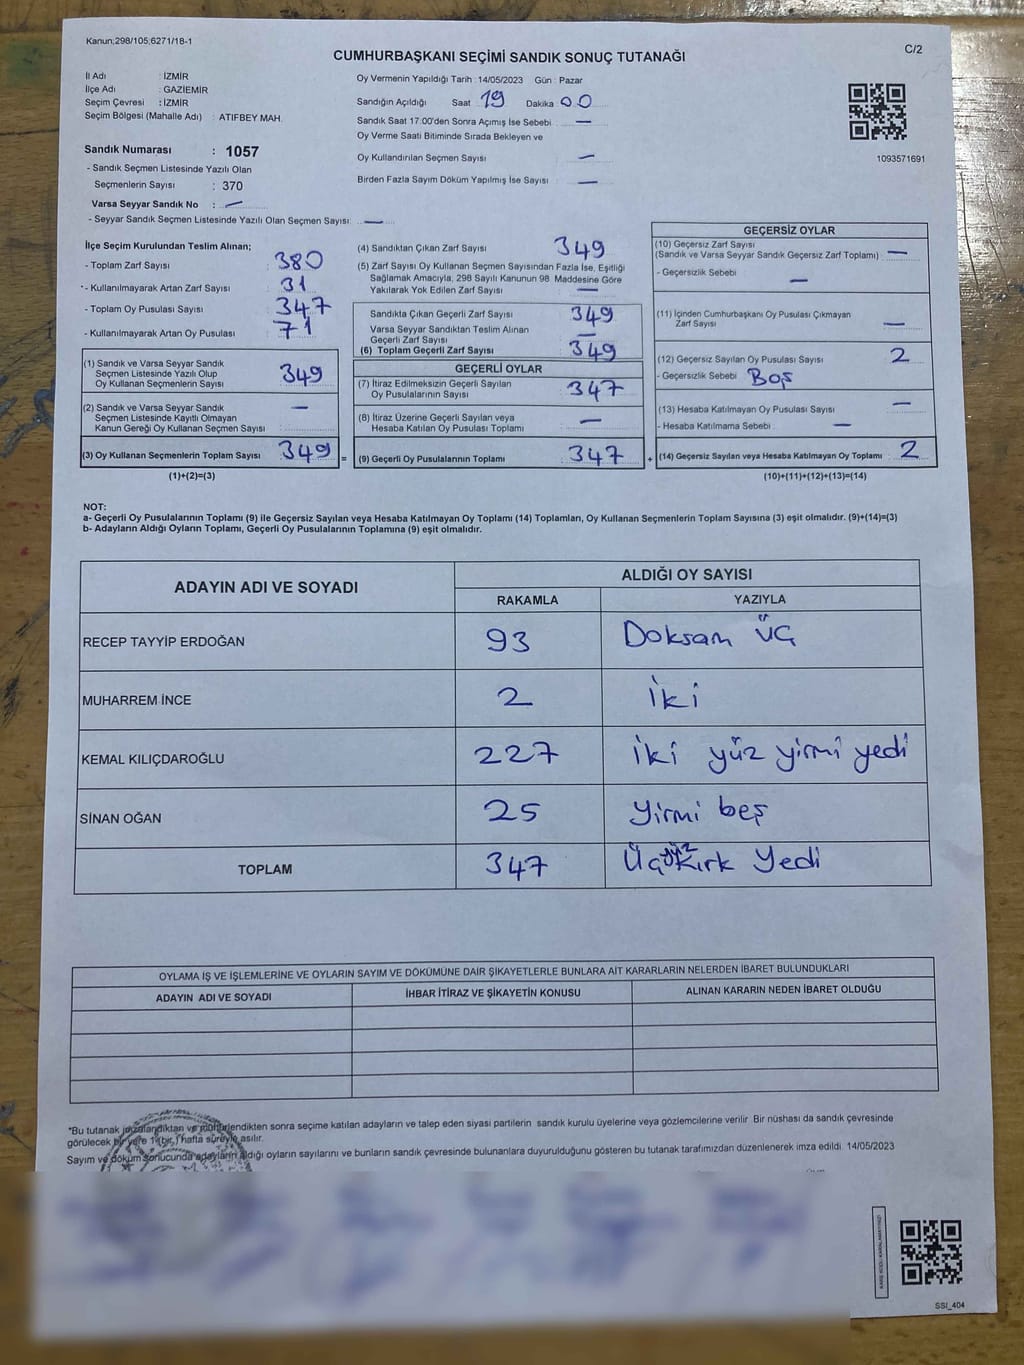 Kanun;298/105;6271/18-1
CUMHURBAŞKANI SEÇİMİ SANDIK SONUÇ TUTANAĞI
C/2
İl Adı : İZMİR
İlçe Adı : GAZİEMİR
Seçim Çevresi : İZMİR
Seçim Bölgesi (Mahalle Adı) : ATIFBEY MAH.
Sandık Numarası : 1057
- Sandık Seçmen Listesinde Yazılı Olan
Seçmenlerin Sayısı : 370
Varsa Seyyar Sandık No : —
- Seyyar Sandık Seçmen Listesinde Yazılı Olan Seçmen Sayısı: —
Oy Vermenin Yapıldığı Tarih : 14/05/2023 Gün : Pazar
Sandığın Açıldığı Saat 19 Dakika 00
Sandık Saat 17.00'den Sonra Açımış İse Sebebi —
Oy Verme Saati Bitiminde Sırada Bekleyen ve
Oy Kullandırılan Seçmen Sayısı —
Birden Fazla Sayım Döküm Yapılmış İse Sayısı —
1093571691
İlçe Seçim Kurulundan Teslim Alınan;
- Toplam Zarf Sayısı : 380
- Kullanılmayarak Artan Zarf Sayısı : 31
- Toplam Oy Pusulası Sayısı : 347
- Kullanılmayarak Artan Oy Pusulası : 71
(1) Sandık ve Varsa Seyyar Sandık
Seçmen Listesinde Yazılı Olup
Oy Kullanan Seçmenlerin Sayısı 349
(2) Sandık ve Varsa Seyyar Sandık
Seçmen Listesinde Kayıtlı Olmayan
Kanun Gereği Oy Kullanan Seçmen Sayısı —
(3) Oy Kullanan Seçmenlerin Toplam Sayısı 349 =
(1)+(2)=(3)
(4) Sandıktan Çıkan Zarf Sayısı 349
(5) Zarf Sayısı Oy Kullanan Seçmen Sayısından Fazla İse, Eşitliği
Sağlamak Amacıyla, 298 Sayılı Kanunun 98. Maddesine Göre
Yakılarak Yok Edilen Zarf Sayısı —
Sandıkta Çıkan Geçerli Zarf Sayısı 349
Varsa Seyyar Sandıktan Teslim Alınan
Geçerli Zarf Sayısı —
(6) Toplam Geçerli Zarf Sayısı 349
GEÇERLİ OYLAR
(7) İtiraz Edilmeksizin Geçerli Sayılan
Oy Pusulalarının Sayısı 347
(8) İtiraz Üzerine Geçerli Sayılan veya
Hesaba Katılan Oy Pusulası Toplamı —
(9) Geçerli Oy Pusulalarının Toplamı 347 +
GEÇERSİZ OYLAR
(10) Geçersiz Zarf Sayısı
(Sandık ve Varsa Seyyar Sandık Geçersiz Zarf Toplamı) —
- Geçersizlik Sebebi —
(11) İçinden Cumhurbaşkanı Oy Pusulası Çıkmayan
Zarf Sayısı —
(12) Geçersiz Sayılan Oy Pusulası Sayısı 2
- Geçersizlik Sebebi Boş
(13) Hesaba Katılmayan Oy Pusulası Sayısı —
- Hesaba Katılmama Sebebi —
(14) Geçersiz Sayılan veya Hesaba Katılmayan Oy Toplamı 2
(10)+(11)+(12)+(13)=(14)
NOT:
a- Geçerli Oy Pusulalarının Toplamı (9) ile Geçersiz Sayılan veya Hesaba Katılmayan Oy Toplamı (14) Toplamları, Oy Kullanan Seçmenlerin Toplam Sayısına (3) eşit olmalıdır. (9)+(14)=(3)
b- Adayların Aldığı Oyların Toplamı, Geçerli Oy Pusulalarının Toplamına (9) eşit olmalıdır.
ADAYIN ADI VE SOYADI ALDIĞI OY SAYISI
RAKAMLA YAZIYLA
RECEP TAYYİP ERDOĞAN 93 Doksam üç
MUHARREM İNCE 2 iki
KEMAL KILIÇDAROĞLU 227 iki yüz yirmi yedi
SİNAN OĞAN 25 yirmi beş
TOPLAM 347 Üç yüz kırk Yedi
OYLAMA İŞ VE İŞLEMLERİNE VE OYLARIN SAYIM VE DÖKÜMÜNE DAİR ŞİKAYETLERLE BUNLARA AİT KARARLARIN NELERDEN İBARET BULUNDUKLARI
ADAYIN ADI VE SOYADI İHBAR İTİRAZ VE ŞİKAYETİN KONUSU ALINAN KARARIN NEDEN İBARET OLDUĞU
*Bu tutanak imzalandıktan ve mühürlendikten sonra seçime katılan adayların ve talep eden siyasi partilerin sandık kurulu üyelerine veya gözlemcilerine verilir. Bir nüshası da sandık çevresinde
görülecek bir yere 1 (bir ) hafta süreyle asılır.
Sayım ve döküm sonucunda adayların aldığı oyların sayılarını ve bunların sandık çevresinde bulunanlara duyurulduğunu gösteren bu tutanak tarafımızdan düzenlenerek imza edildi. 14/05/2023
SSI_404